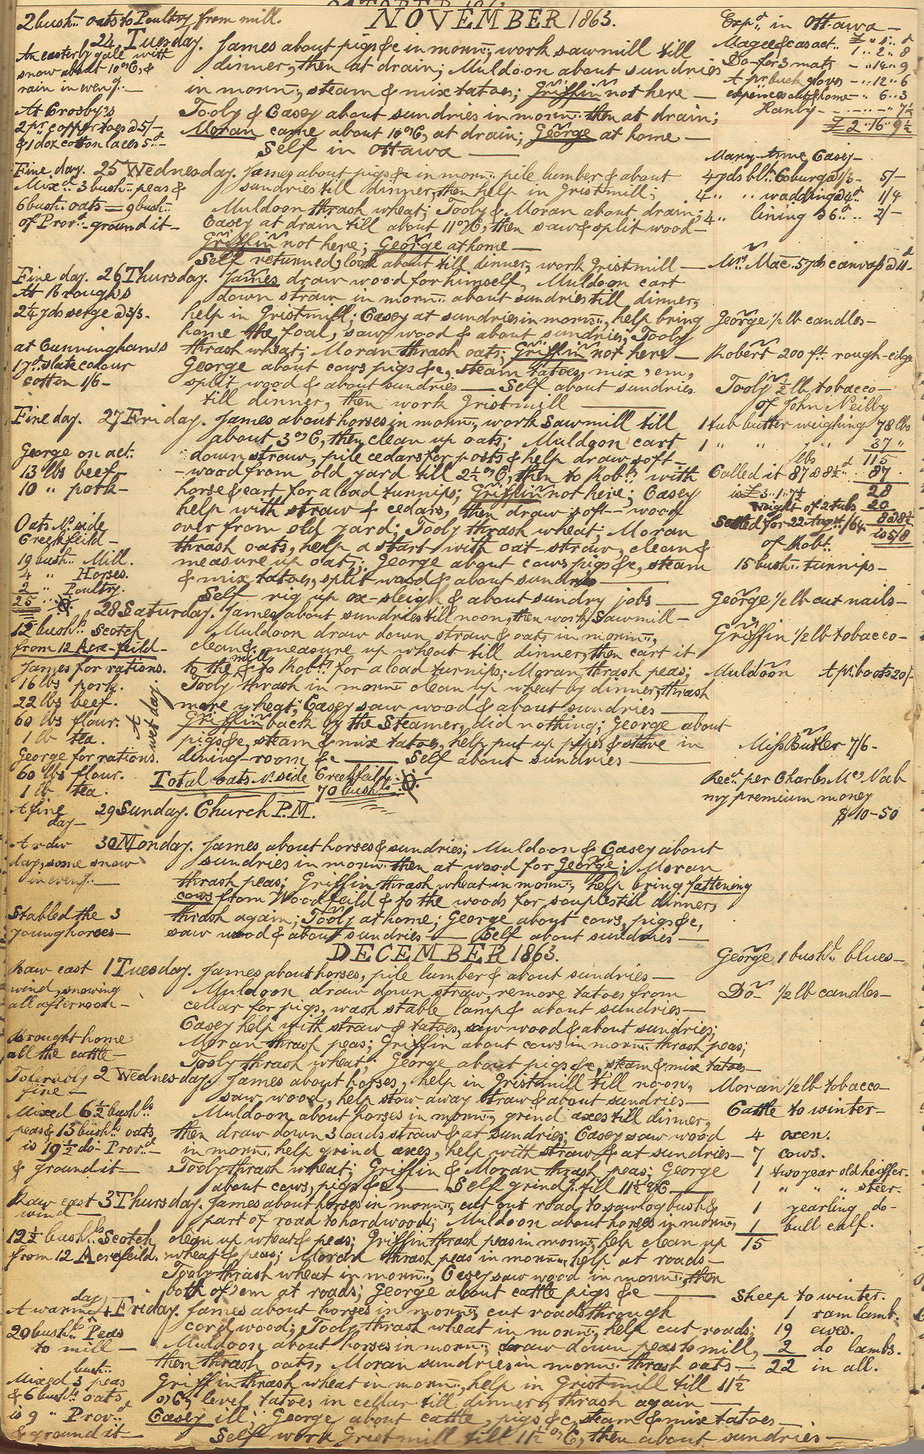 NOVEMBER 1863.
2 bush.ls oats to Poultry from mill.
24 Tuesday. James about pigs &c in morn:; work sawmill till
dinner, then at drain; Muldoon about sundries
in morn:, steam & mix tatoes; Griffin not here —
Tooly & Casey about sundries in morn: then at drain;
Moran came about 10 o'C, at drain; George at home —
Self in Ottawa —
An easterly gale with
snow about 10 o'C, &
rain in even'g: —
At Crosby's
2 pr. copper toes @ 5/-
& 1 doz cotton laces 5d —
Exp.s in Ottawa
Magee & Cas act.
Do for 3 mats - " 16 " 9
A pr. buck gloves - " 12 " 6
expences out & home - " 6 " 3
Hanby - 7½
£2 " 16 " 9½
Fine day. 25 Wednesday. James about pigs &c in morn: pile lumber & about
sundries till dinner, then help in Gristmill;
Muldoon thrash wheat; Tooly & Moran about drain;
Casey at drain till about 11 o'C, then saw & split wood —
Griffin not here; George at home —
Self returned, look about till dinner, work Gristmill —
Mix.d 3 bush.ls peas &
6 bush.ls oats = 9 bush.ls
of Prov.r ground it —
Mary Anne Casey —
4 yds bl.k Coburg @ 1/3 5/-
4 " wadding @ 4d 1/4
4 " lining @ 6d 2/-
Mrs. Mac. 57 yds canvas @ 11d
Fine day. 26 Thursday. James draw wood for himself, Muldoon cart
down straw in morn: about sundries till dinner,
help in Gristmill; Casey at sundries in morn:, help bring
home the foal, saw wood & about sundries; Tooly
thrash wheat; Moran thrash oats; Griffin not here —
George about cows, pigs &c, steam tatoes, mix 'em,
split wood & about sundries — Self about sundries
till dinner, then work Gristmill —
At Brough's
2¼ yds serge @ 3/3.
at Cunningham's
17 yd. slate colour
cotton 1/6 —
George ½ lb candles —
Robert 200 ft. rough-edge
Tooly ½ lb tobacco —
of John Neilly
Fine day. 27 Friday. James about horses in morn:, work Sawmill till
about 3 o'C, then clean up oats; Muldoon cart
down straw, pile cedars for posts & help draw soft-
wood from old yard till 2½ o'C, then to Rob.ts with
horse & cart for a load turnips; Griffin not here; Casey
help with straw & cedars, then draw soft-wood
over from old yard; Tooly thrash wheat; Moran
thrash oats, help a start with oat-straw, clean &
measure up oats; George about cows, pigs &c, steam
& mix tatoes, split wood & about sundries —
Self rig up ox-sleigh & about sundry jobs —
George on act.
13 lbs beef —
10 " pork —
Oats N. side
Creekfeild —
19 bush.ls Mill.
4 " Horses.
2 " Poultry.
25
1 tub butter weighing 78 lbs
1 " " " 37 "
lbs 115
Called it 87 @ 8½d 87
28
Weight of 2 tubs 20
Settled for 22 Augst/64
of Rob.t
15 bush.ls turnips —
28 Saturday. James about sundries till noon, then work Sawmill —
Muldoon draw down straw & oats in morn:,
clean & measure up wheat till dinner, then cart it
to the mill & to Rob.ts for a load turnips; Moran thrash peas;
Tooly thrash in morn: clean up wheat by dinner, thrash
more wheat; Casey saw wood & about sundries —
Griffin back by the Steamer, did nothing; George about
pigs &c, steam & mix tatoes, help put up pipes & stove in
dining-room &c — Self about sundries —
Total oats N. side Creekfeild 70 bush.ls
A wet day
12 bush.ls Scotch
from 12 Acre-feild.
James for rations.
16 lbs pork.
22 lbs beef.
60 lbs flour.
1 lb tea.
George for rations.
60 lbs flour.
1 lb tea.
George ½ lb cut nails —
Griffin ½ lb tobacco —
Muldoon A pr. boots 20/-
Miss Butler 7/6 —
Rec.d per Charles McNab
my premium money
$10-50
A fine day — 29 Sunday. Church P.M.
A raw 30 Monday. James about horses & sundries; Muldoon & Casey about
sundries in morn: then at wood for George; Moran
thrash peas; Griffin thrash wheat in morn:, help bring fattening
cows from Wood feild & to the woods for soupls till dinner,
thrash again; Tooly at home; George about cows, pigs &c,
saw wood & about sundries — Self about sundries —
day, some snow
in even'g: —
Stabled the 3
young horses —
DECEMBER 1863.
Raw east 1 Tuesday. James about horses, pile lumber & about sundries —
Muldoon draw down straw, remove tatoes from
cellar for pigs, wash stable lamp & about sundries —
Casey help with straw & tatoes, saw wood & about sundries;
Moran thrash peas; Griffin about cows in morn: thrash peas;
Tooly thrash wheat; George about pigs &c, steam & mix tatoes —
wind, snowing
all afternoon —
Brought home
all the cattle —
George 1 bush.l blues —
Do ½ lb candles —
Tolerably 2 Wednesday. James about horses, help in Gristmill till noon,
saw wood, help stow away straw & about sundries —
Muldoon about horses in morn:, grind axes till dinner,
then draw down 3 loads straw & at sundries; Casey saw wood
in morn:, help grind axes, help with straw & at sundries —
Tooly thrash wheat; Griffin & Moran thrash peas; George
about cows, pigs &c — Self grind till 11½ o'C —
fine —
Mixed 6½ bush.ls
peas & 13 bush.ls oats
is 19½ do Prov.r —
& ground it —
Moran ½ lb tobacco
Cattle to winter —
4 oxen.
7 cows.
1 two year old heiffer.
1 " " " steer.
1 yearling do —
1 bull calf.
15
Raw east 3 Thursday. James about horses in morn:, cut out road to sawlog bush &
part of road to hardwood; Muldoon about horses in morn:,
clean up wheat & peas; Griffin thrash peas in morn:, help clean up
wheat & peas; Moran thrash peas in morn:, help at roads —
Tooly thrash wheat in morn:; Casey saw wood in morn:, then
both of 'em at roads; George about cattle pigs &c —
wind —
12½ bush.ls Scotch
from 12 Acrefeild.
Sheep to winter.
1 ram lamb.
19 ewes.
2 do lambs.
22 in all.
A warm day 4 Friday. James about horses in morn:, cut roads through
cordwood; Tooly thrash wheat in morn:, help cut roads;
Muldoon about horses in morn:; draw down peas to mill,
then thrash oats, Moran sundries in morn: thrash oats —
Griffin thrash wheat in morn:, help in Gristmill till 11½
o'C, level tatoes in cellar till dinner, thrash again —
Casey ill; George about cattle, pigs &c, steam & mix tatoes —
Self work Gristmill till 11½ o'C, then about sundries —
20 bush.ls Peas
to mill —
Mixed 3 bush.ls peas
& 6 bush.ls oats,
is 9 " Prov.r
& ground it —